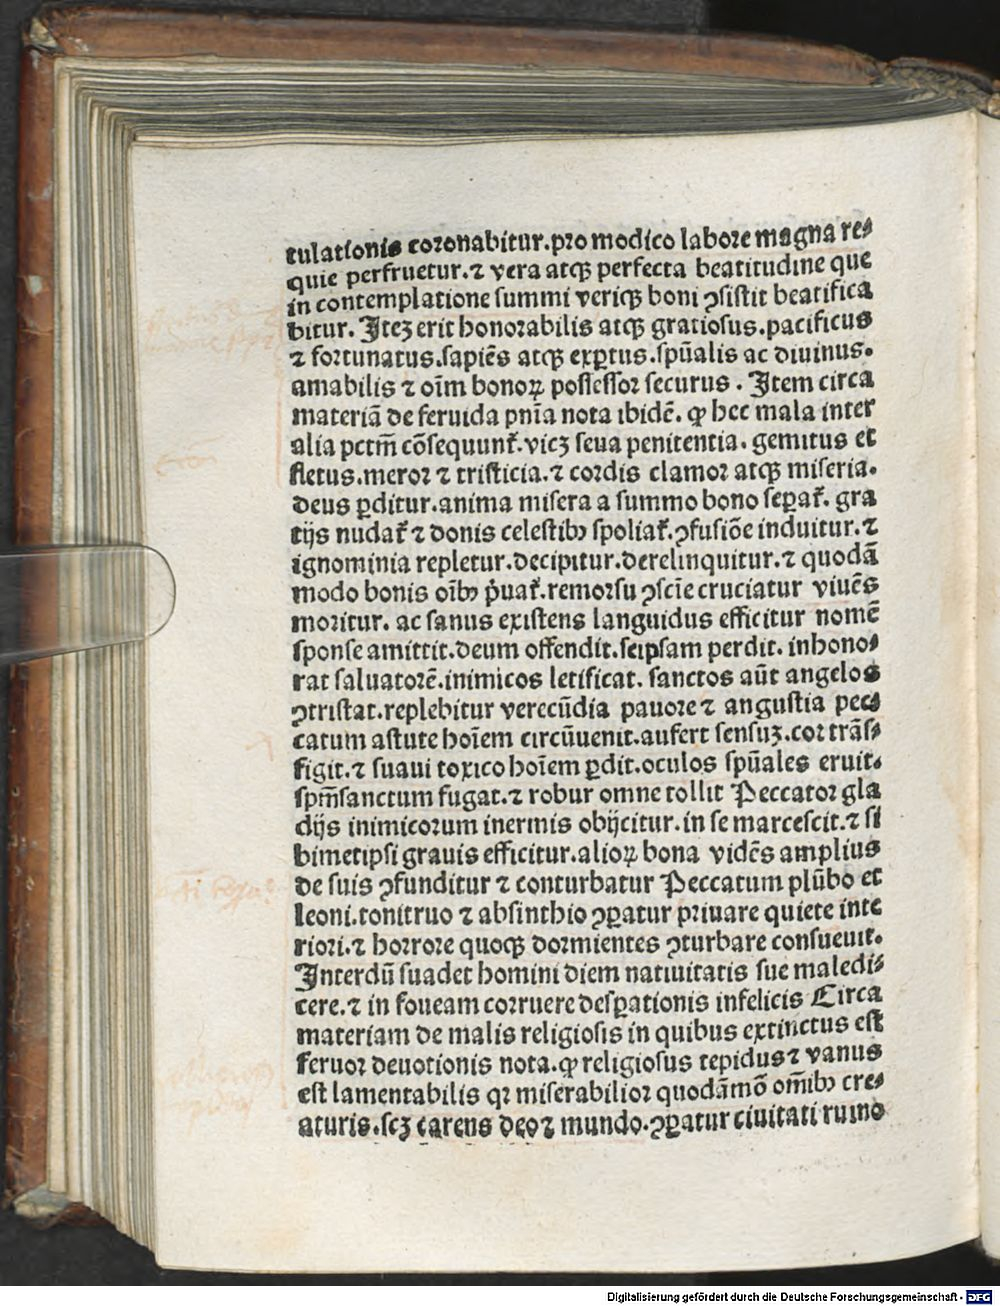 tulationis coronabitur.pro modico labore magna re⸗
quie perfruetur.⁊ vera atqꝫ perfecta beatitudine que
in contemplatione summi veriqꝫ boni ꝯsistit beatifica
bitur. Iteꝫ erit honorabilis atqꝫ gratiosus.pacificus
⁊ fortunatus.sapiēs atqꝫ exꝑtus.spūalis ac diuinus.
amabilis ⁊ oīm bonoꝝ possessor securus . Item circa
materiā de feruida pnīa nota ibidē. ꝙ hec mala inter
alia pctm̄ cōsequunt᷑.vicꝫ seua penitentia. gemitus et
fletus.meror ⁊ tristicia.⁊ cordis clamor atqꝫ miseria.
deus ꝑditur.anima misera a summo bono seꝑat᷑. gra
tijs nudat᷑ ⁊ donis celestibꝰ spoliat᷑.ꝯfusiōe induitur.⁊
ignominia repletur.decipitur.derelinquitur.⁊ quodā
modo bonis oībꝰ p̍uat᷑.remorsu ꝯscīe cruciatur viuēs
moritur. ac sanus existens languidus efficitur nomē
sponse amittit.deum offendit.seipsam perdit. inhono⸗
rat saluatorē.inimicos letificat. sanctos aūt angelos
ꝯtristat.replebitur verecūdia pauore ⁊ angustia pec⸗
catum astute hoīem circūuenit.aufert sensuꝫ.cor trās⸗
figit.⁊ suaui toxico hoīem ꝑdit.oculos spūales eruit.
spm̄sanctum fugat.⁊ robur omne tollit Peccator gla
dijs inimicorum inermis obijcitur.in se marcescit.⁊ si
bimetipsi grauis efficitur.alioꝝ bona vidēs amplius
de suis ꝯfunditur ⁊ conturbatur Peccatum plūbo et
leoni.tonitruo ⁊ absinthio ꝯꝑatur priuare quiete inte
riori.⁊ horrore quoqꝫ dormientes ꝯturbare consueuit.
Interdū suadet homini diem natiuitatis sue maledi⸗
cere.⁊ in foueam corruere desꝑationis infelicis Circa
materiam de malis religiosis in quibus extinctus est
feruor deuotionis nota.ꝙ religiosus tepidus ⁊ vanus
est lamentabilis qꝛ miserabilior quodāmō om̄ibꝰ cre⸗
aturis.scꝫ carens deo ⁊ mundo.ꝯꝑatur ciuitati ruino
Digitalisierung gefördert durch die Deutsche Forschungsgemeinschaft - DFG